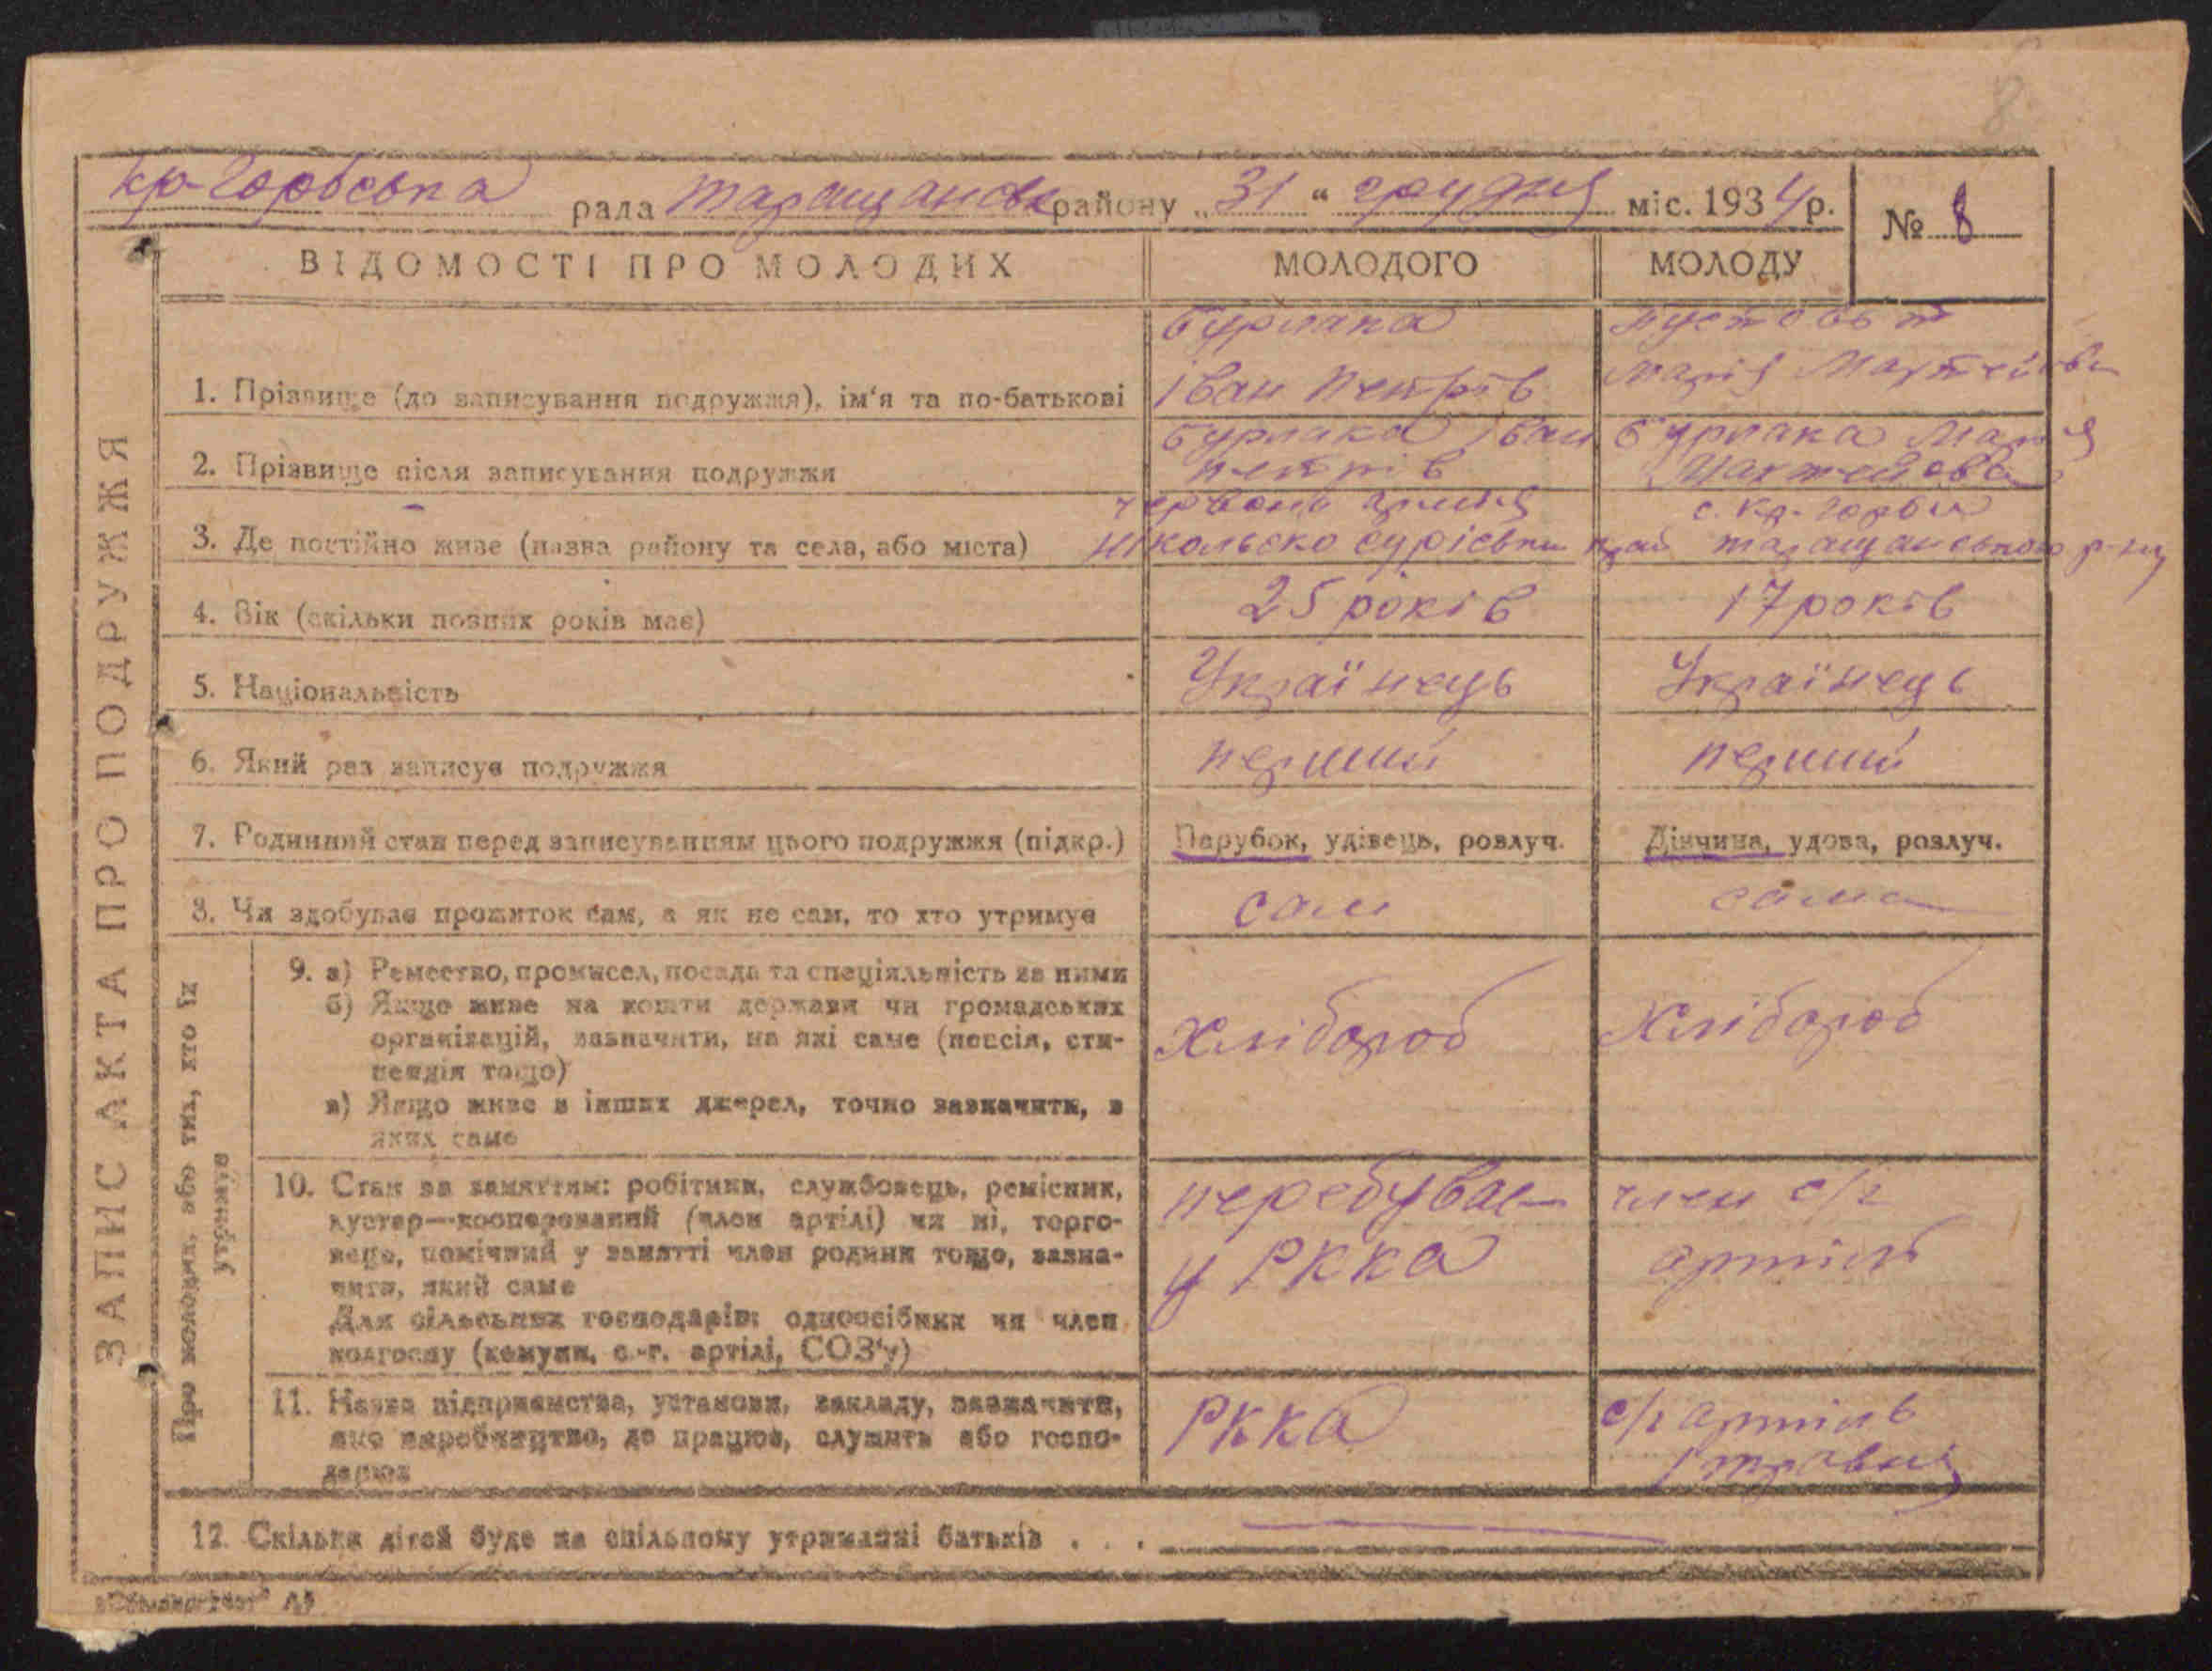 8
Кр-Горбська рада Таращанськ району „31“ грудня міс. 1934 р. № 8
ВІДОМОСТІ ПРО МОЛОДИХ МОЛОДОГО МОЛОДУ
ЗАПИС АКТА ПРО ПОДРУЖЖЯ
Бурлака
Іван Петрів
Пустовіт
Марія
1. Прізвище (до записування подружжя), ім'я та по-батькові
2. Прізвище після записування подружжя
Бурлака Іван
Петрів
Бурлака Марія
3. Де постійно живе (назва району та села, або міста)
Червона армія
край
с. Кр-Горби
таращанського р-ну
4. Вік (скільки повних років має) 25 років 17 років
5. Національність Українець Українець
6. Який раз записує подружжя перший перший
7. Родинний стан перед записуванням цього подружжя (підкр.) Парубок, удівець, розлуч. Дівчина, удова, розлуч.
8. Чи здобуває прожиток сам, а як не сам, то хто утримує сам сама
Про молодих, або тих, хто їх
утримує
9. а) Ремество, промисел, посада та спеціяльність за ними
б) Якщо живе на кошти держави чи громадських
організацій, зазначити, на які саме (пенсія, сти-
пендія тощо)
в) Якщо живе з інших джерел, точно зазначити, з
яких саме
Хлібороб Хлібороб
10. Стан за заняттям: робітник, службовець, ремісник,
кустар—кооперований (член артілі) чи ні, торго-
вець, помічний у занятті член родини тощо, зазна-
чити, який саме
Для сільських господарів: одноосібник чи член
колгоспу (комуни, с.-г. артілі, СОЗ'у)
перебуває
у РККА
член с/г
артілі
11. Назва підприємства, установи, закладу, зазначити,
яке виробництво, де працює, служить або госпо-
дарює
РККА
с/г артіль
1 травня
12. Скільки дітей буде на спільному утриманні батьків . . .